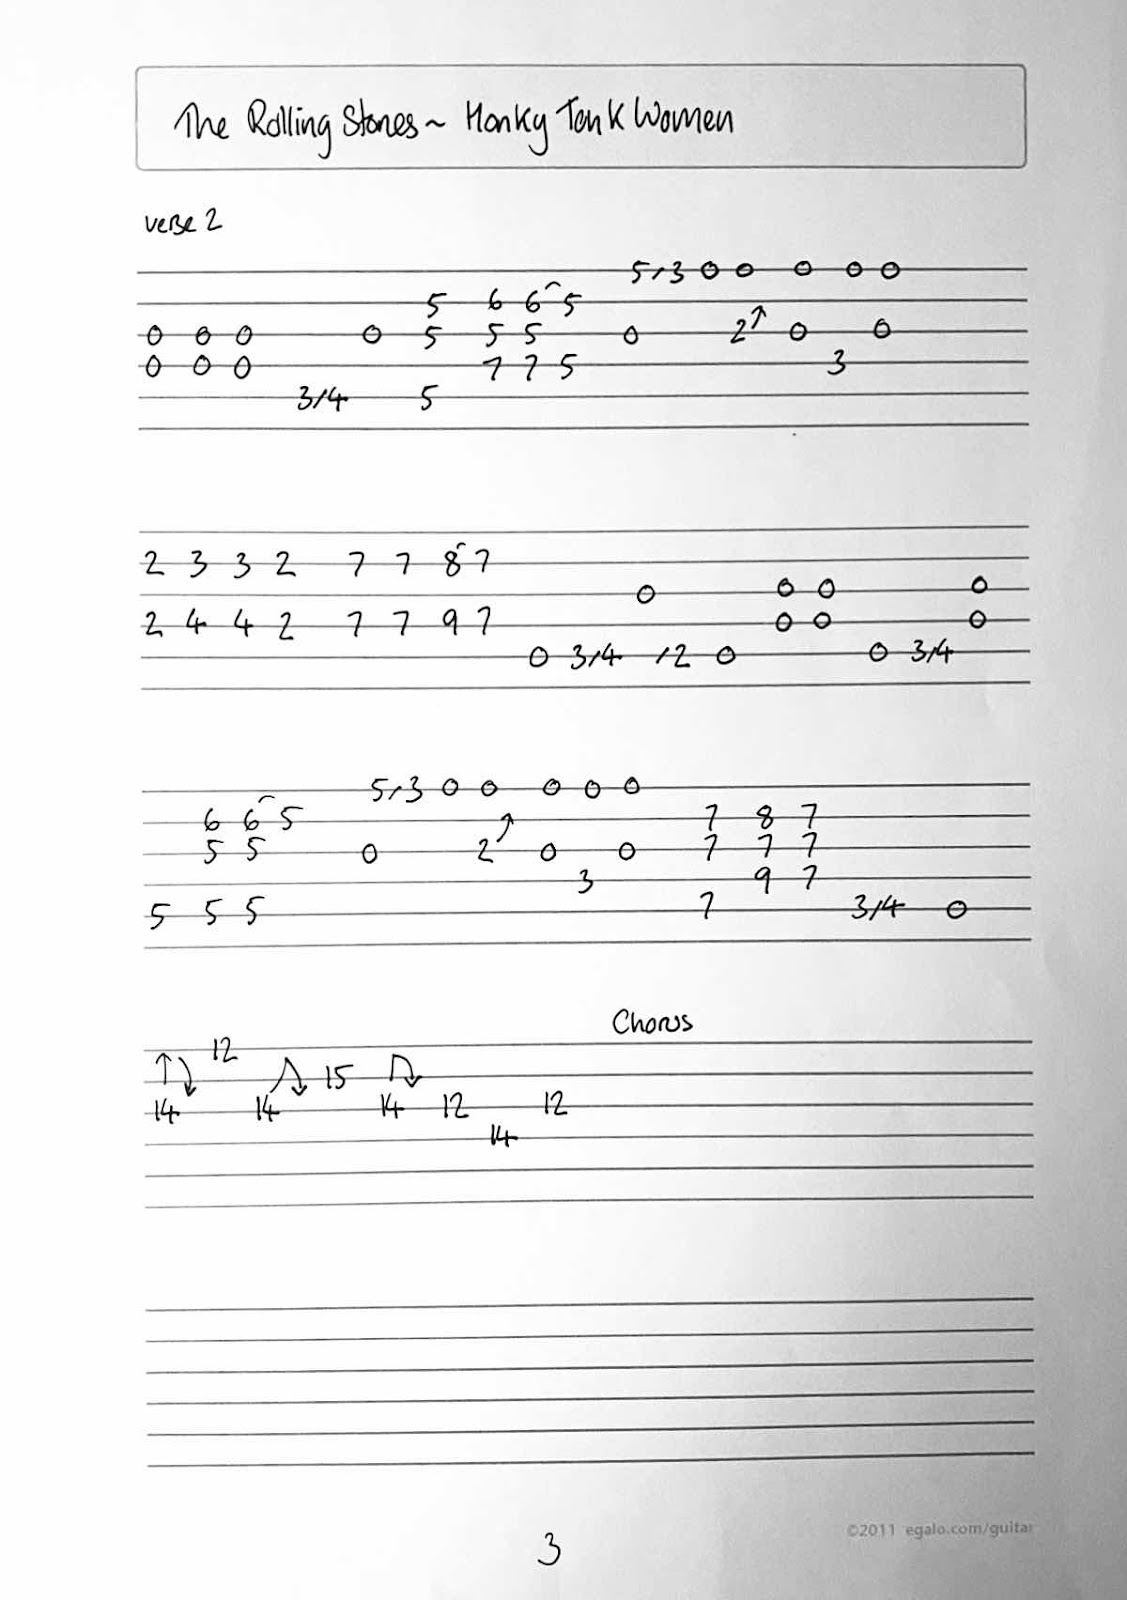 The Rolling Stones ~ Honky Tonk Women
verse 2
5/3 0 0 0 0 0
5 6 6 5
0 0 0 0 5 5 5 0 2 0 0
0 0 0 7 7 5 3
3/4 5
2 3 3 2 7 7 8 7
0 0 0 0
2 4 4 2 7 7 9 7 0 0 0
0 3/4 /2 0 0 3/4
5/3 0 0 0 0 0
6 6 5 7 8 7
5 5 0 2 0 0 7 7 7
3 9 7
5 5 5 7 3/4 0
Chorus
12
15
14 14 14 12 12
14
©2011 egalo.com/guitar
3